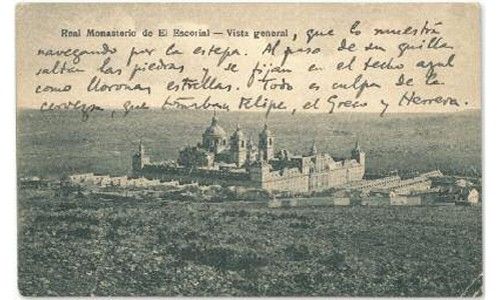 Real Monasterio de El Escorial — Vista general, que lo muestra
navegando por la estepa. Al paso de su quilla
saltan las piedras y se fijan en el techo azul
como lloronas estrellas. Todo es culpa de la
cerveza, que tomaban Felipe, el Greco y Herrera.